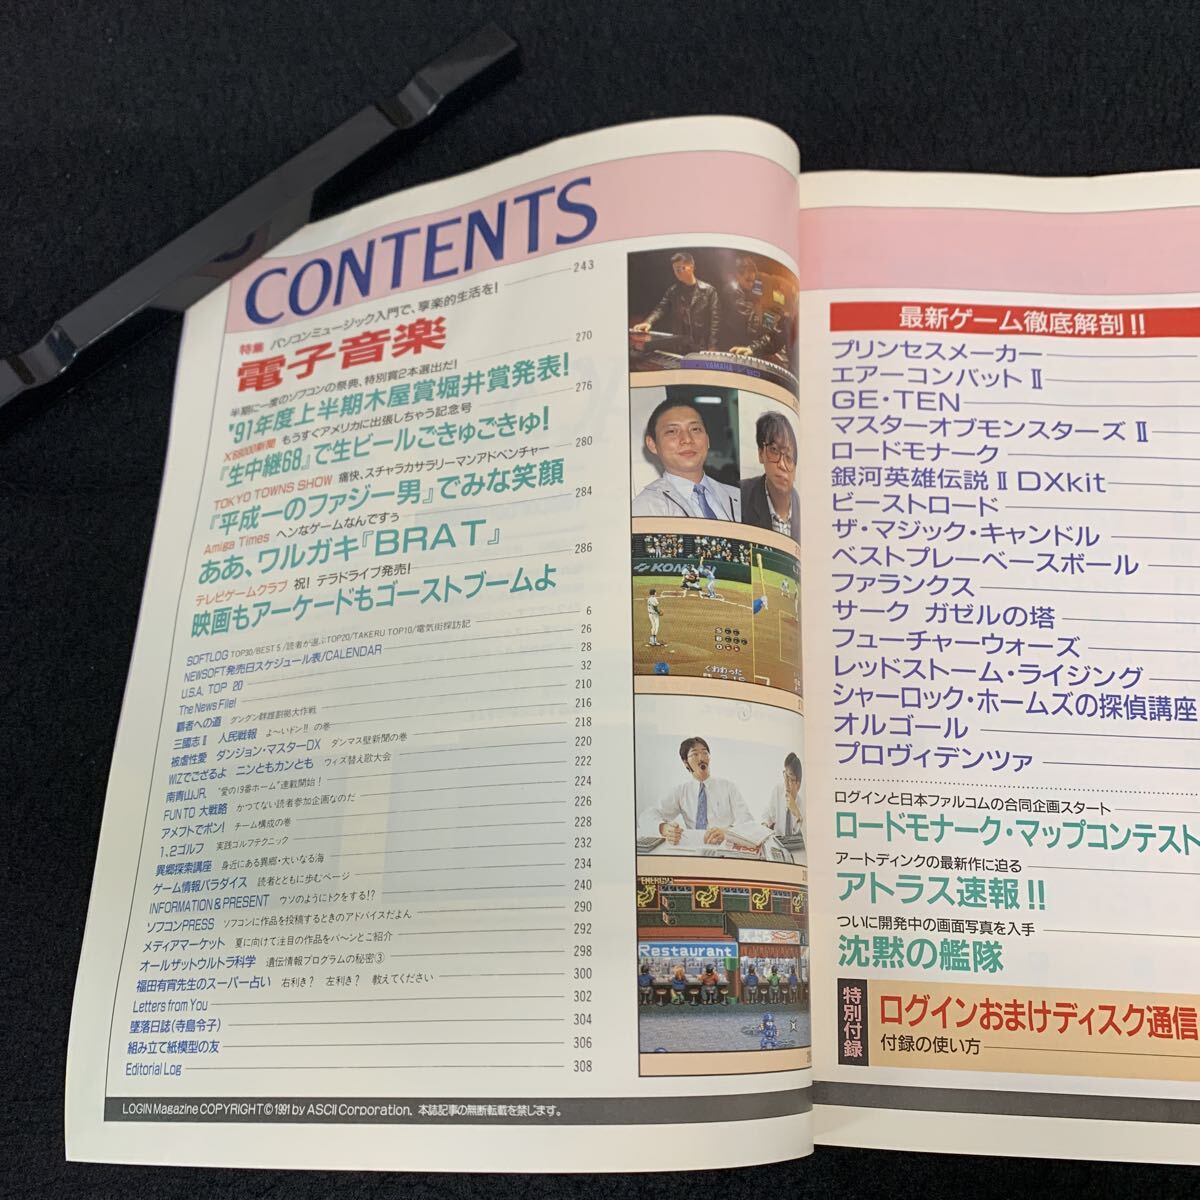 CONTENTS
特集 パソコンミュージック入門で、享楽的生活を! 243
電子音楽
半期に一度のソフコンの祭典、特別賞2本選出だ! 270
'91年度上半期木屋賞堀井賞発表!
X68000新聞 もうすぐアメリカに出張しちゃう記念号 276
『生中継68』で生ビールごきゅごきゅ!
TOKYO TOWNS SHOW 痛快、スチャラカサラリーマンアドベンチャー 280
『平成一のファジー男』でみな笑顔
Amiga Times ヘンなゲームなんですぅ 284
ああ、ワルガキ『BRAT』
テレビゲームクラブ 祝! テラドライブ発売! 286
映画もアーケードもゴーストブームよ
SOFTLOG TOP30/BEST5/読者が選ぶTOP20/TAKERU TOP10/電気街探訪記 6
NEWSOFT発売日スケジュール表/CALENDAR 26
U.S.A. TOP 20 28
The News File! 32
覇者への道 ダングン群雄割拠大作戦 210
三國志II 人民戦報 よ〜いドン!!の巻 216
被虐性愛 ダンジョン・マスターDX ダンマス壁新聞の巻 218
WIZでござるよ ニンともカンとも ウィズ替え歌大会 220
南青山J.R. "愛の19番ホーム"連載開始! 222
FUN TO 大戦略 かつてない読者参加企画なのだ 224
アメフトでポン! チーム構成の巻 226
1、2ゴルフ 実践ゴルフテクニック 228
異郷探索講座 身近にある異郷・大いなる海 232
ゲーム情報パラダイス 読者とともに歩むページ 234
INFORMATION & PRESENT ウソのようにトクをする!? 240
ソフコンPRESS ソフコンに作品を投稿するときのアドバイスだよん 290
メディアマーケット 夏に向けて注目の作品をバ〜ンとご紹介 292
オールザットウルトラ科学 遺伝情報プログラムの秘密③ 298
福田有宵先生のスーパー占い 右利き? 左利き? 教えてください 300
Letters from You 302
墜落日誌(寺島令子) 304
組み立て紙模型の友 306
Editorial Log 308
LOGIN Magazine COPYRIGHT©1991 by ASCII Corporation. 本誌記事の無断転載を禁じます。
YAMAHA
KONAMI
くわわった
ENERGY
Restaurant
最新ゲーム徹底解剖!!
プリンセスメーカー
エアーコンバットII
GE・TEN
マスターオブモンスターズII
ロードモナーク
銀河英雄伝説II DXkit
ビーストロード
ザ・マジック・キャンドル
ベストプレーベースボール
ファランクス
サーク ガゼルの塔
フューチャーウォーズ
レッドストーム・ライジング
シャーロック・ホームズの探偵講座
オルゴール
プロヴィデンツァ
ログインと日本ファルコムの合同企画スタート
ロードモナーク・マップコンテスト
アートディンクの最新作に迫る
アトラス速報!!
ついに開発中の画面写真を入手
沈黙の艦隊
特別付録
ログインおまけディスク通信
付録の使い方